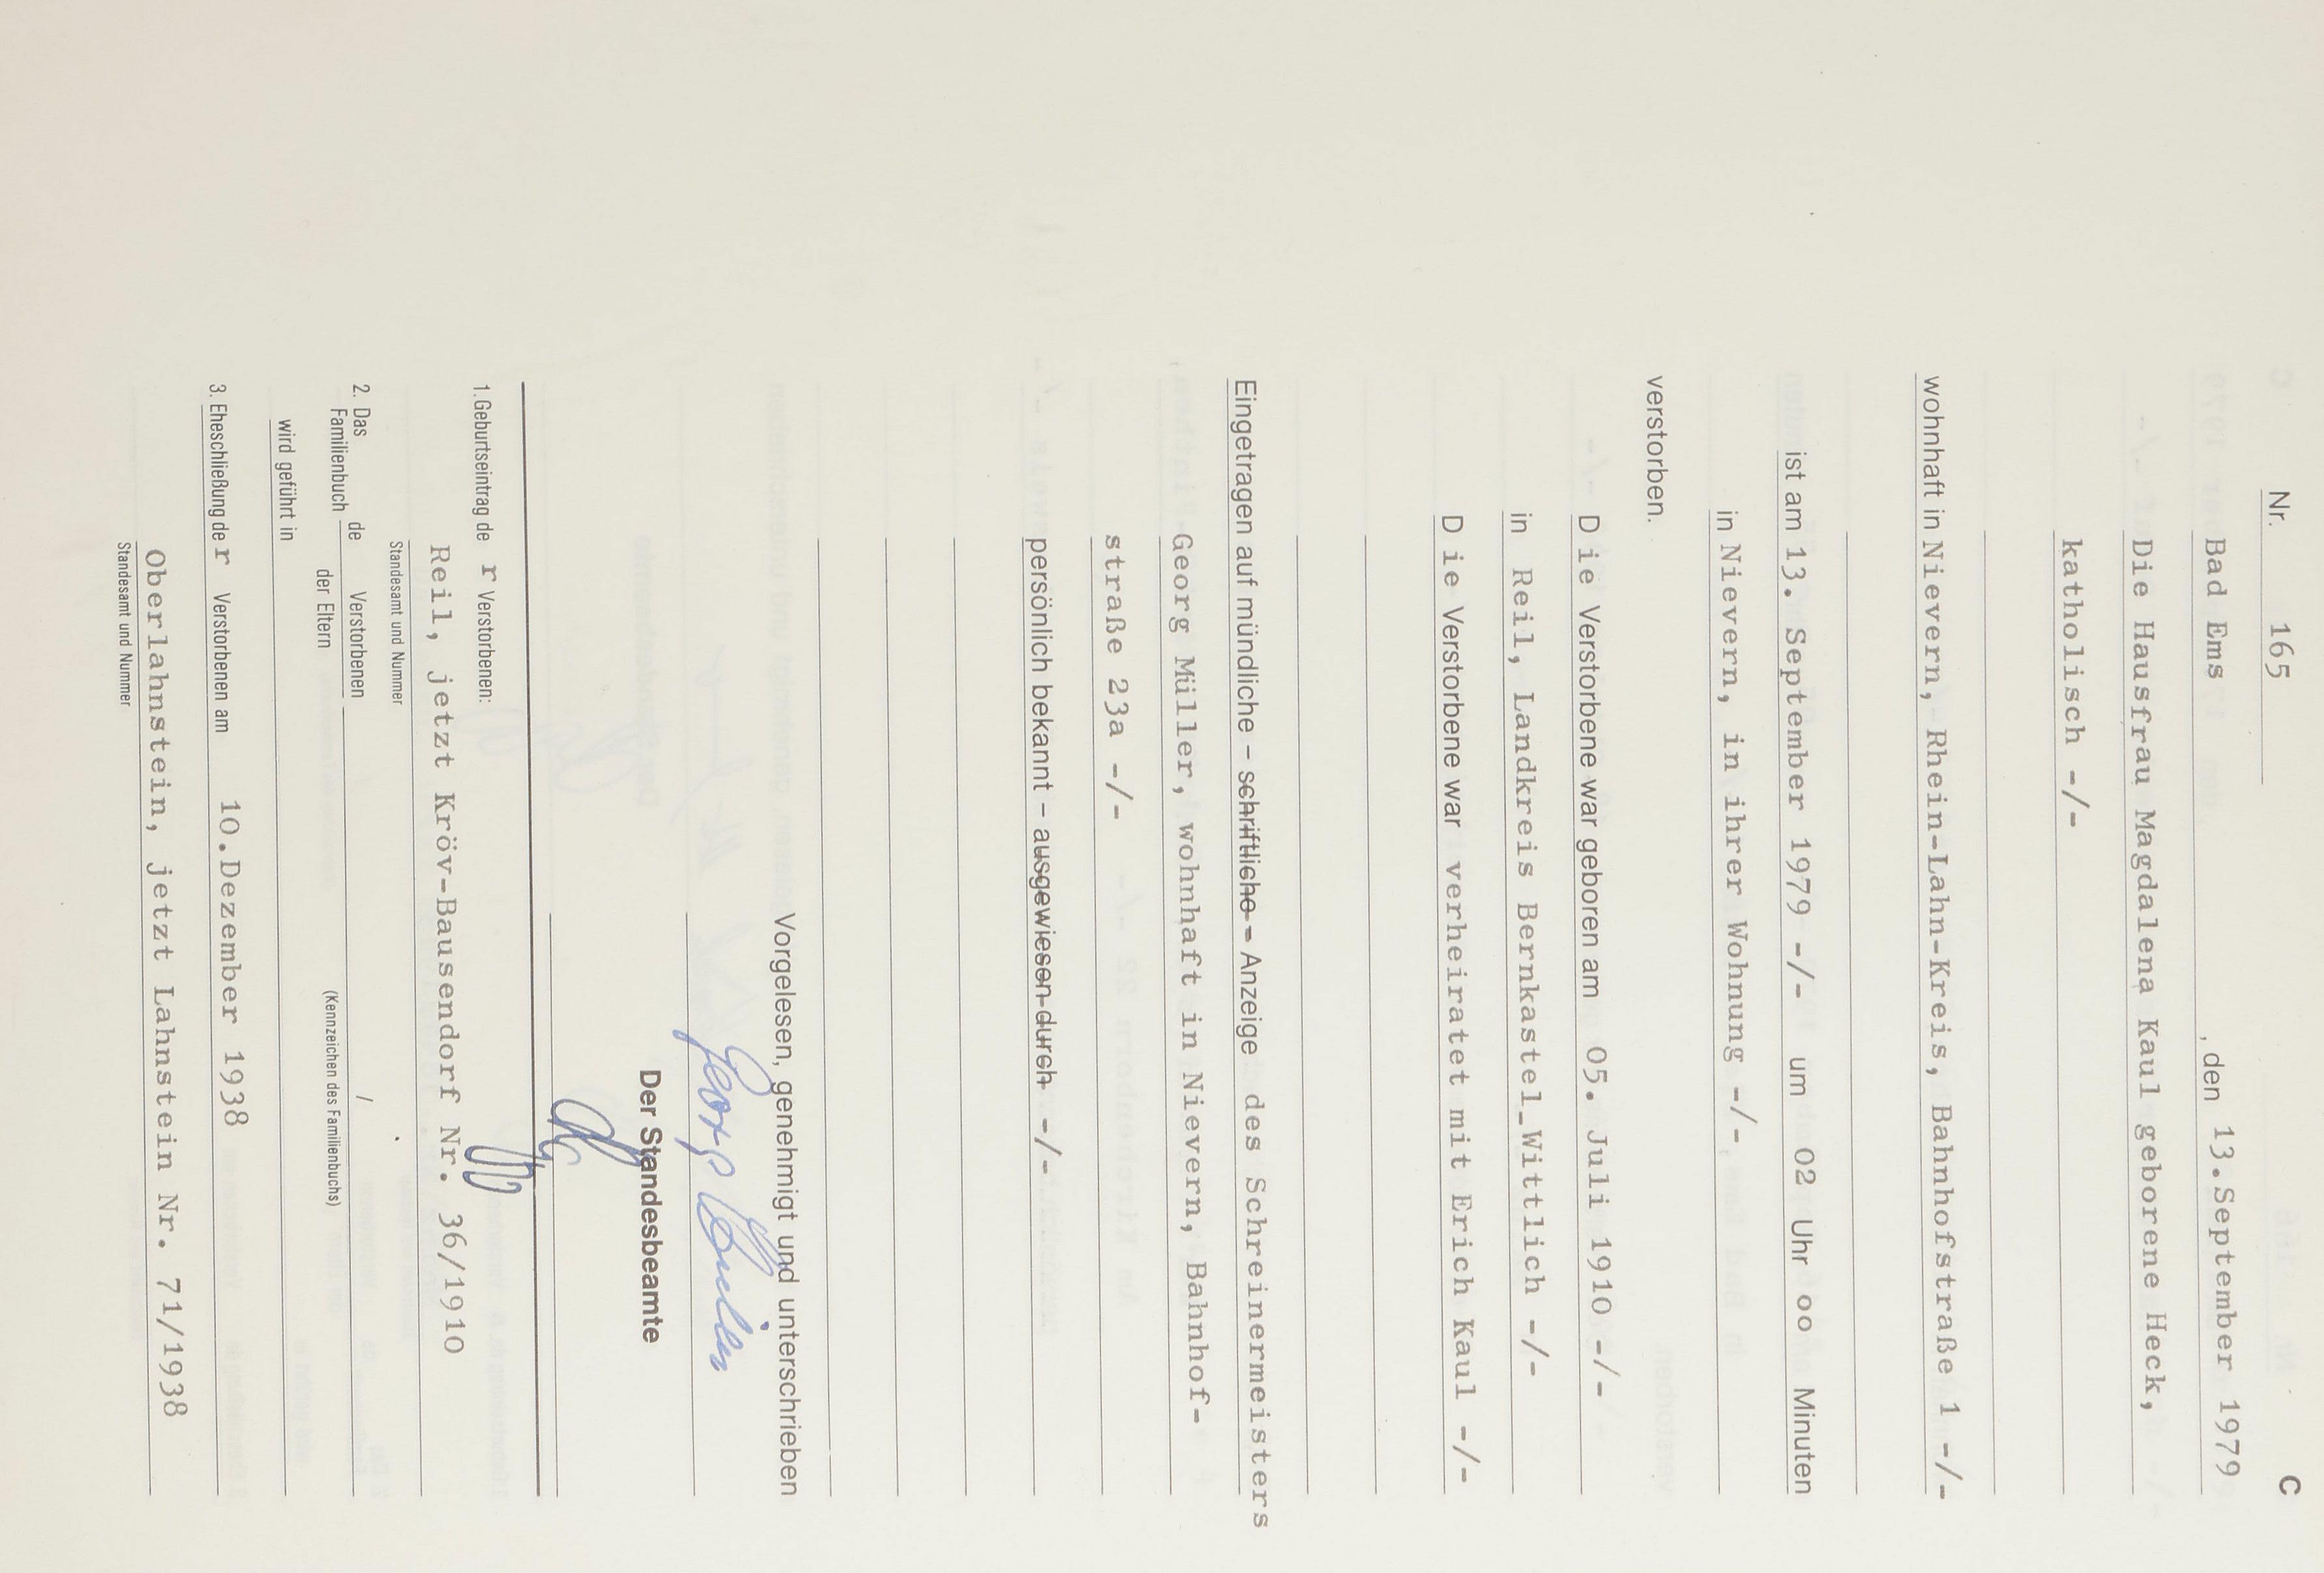 C
Nr. 165
Bad Ems , den 13.September 1979
Die Hausfrau Magdalena Kaul geborene Heck,
katholisch -/-
wohnhaft in Nievern, Rhein-Lahn-Kreis, Bahnhofstraße 1 -/-
ist am 13. September 1979 -/- um 02 Uhr oo Minuten
in Nievern, in ihrer Wohnung -/-
verstorben.
D ie Verstorbene war geboren am 05. Juli 1910 -/-
in Reil, Landkreis Bernkastel_Wittlich -/-
D ie Verstorbene war verheiratet mit Erich Kaul -/-
Eingetragen auf mündliche – schriftliche – Anzeige des Schreinermeisters
Georg Müller, wohnhaft in Nievern, Bahnhof-
straße 23a -/-
persönlich bekannt – ausgewiesen durch -/-
Vorgelesen, genehmigt und unterschrieben
Georg Müller
Der Standesbeamte
1. Geburtseintrag de r Verstorbenen:
Reil, jetzt Kröv-Bausendorf Nr. 36/1910
Standesamt und Nummer
2. Das Familienbuch de Verstorbenen /
der Eltern (Kennzeichen des Familienbuchs)
wird geführt in
3. Eheschließung de r Verstorbenen am 10.Dezember 1938
Oberlahnstein, jetzt Lahnstein Nr. 71/1938
Standesamt und Nummer